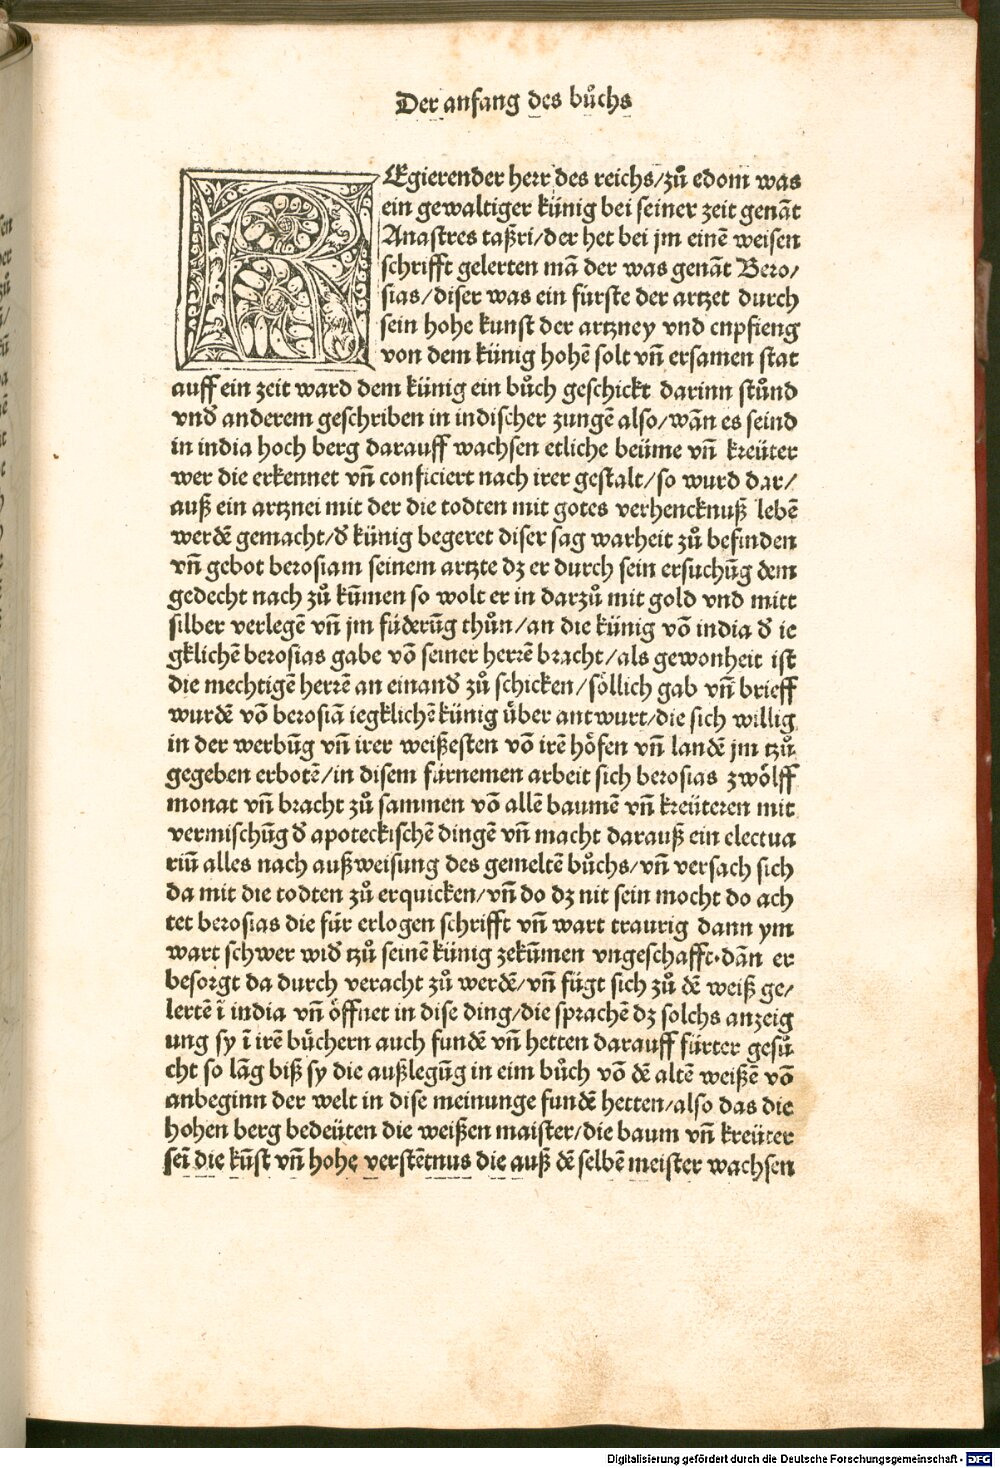 Der anfang des bůchs
REgierender herr des reichs/zů edom was
ein gewaltiger künig bei seiner zeit genãt
Anastres taßri/der het bei jm einẽ weisen
schrifft gelerten mã der was genãt Bero/
sias/diser was ein fürste der artzet durch
sein hohe kunst der artzney vnd enpfieng
von dem künig hohẽ solt vñ ersamen stat
auff ein zeit ward dem künig ein bůch geschickt darinn stůnd
vnđ anderem geschriben in indischer zungẽ also/wãn es seind
in india hoch berg darauff wachsen etliche beüme vñ kreüter
wer die erkennet vñ conficiert nach irer gestalt/so wurd dar/
auß ein artznei mit der die todten mit gotes verhencknuß lebẽ
werdẽ gemacht/đ künig begeret diser sag warheit zů befinden
vñ gebot berosiam seinem artzte dz er durch sein ersuchũg dem
gedecht nach zů kũmen so wolt er in darzů mit gold vnd mitt
silber verlegẽ vñ jm füderũg thůn/an die künig võ india đ ie
gklichẽ berosias gabe võ seiner herrẽ bracht/als gewonheit ist
die mechtigẽ herrẽ an einanđ zů schicken/söllich gab vñ brieff
wurdẽ võ berosiã iegklichẽ künig über antwurt/die sich willig
in der werbũg vñ irer weißesten võ irẽ höfen vñ landẽ jm tzů
gegeben erbotẽ/in disem fürnemen arbeit sich berosias zwölff
monat vñ bracht zů sammen võ allẽ baumẽ vñ kreüteren mit
vermischũg đ apoteckischẽ dingẽ vñ macht darauß ein electua
riũ alles nach außweisung des gemeltẽ bůchs/vñ versach sich
da mit die todten zů erquicken/vñ do dz nit sein mocht do ach
tet berosias die für erlogen schrifft vñ wart traurig dann ym
wart schwer widđ tzů seinẽ künig zekũmen vngeschafft·dãn er
besorgt da durch veracht zů werdẽ/vñ fügt sich zů dẽ weiß ge/
lertẽ ĩ india vñ öffnet in dise ding/die sprachẽ dz solchs anzeig
ung sy ĩ irẽ bůchern auch fundẽ vñ hetten darauff fürter gesů
cht so lãg biß sy die außlegũg in eim bůch võ dẽ altẽ weißẽ võ
anbeginn der welt in dise meinunge fundẽ hetten/also das die
hohen berg bedeüten die weißen maister/die baum vñ kreüter
seĩ die kũst vñ hohe verstẽtnus die auß dẽ selbẽ meister wachsen
Digitalisierung gefördert durch die Deutsche Forschungsgemeinschaft - DFG